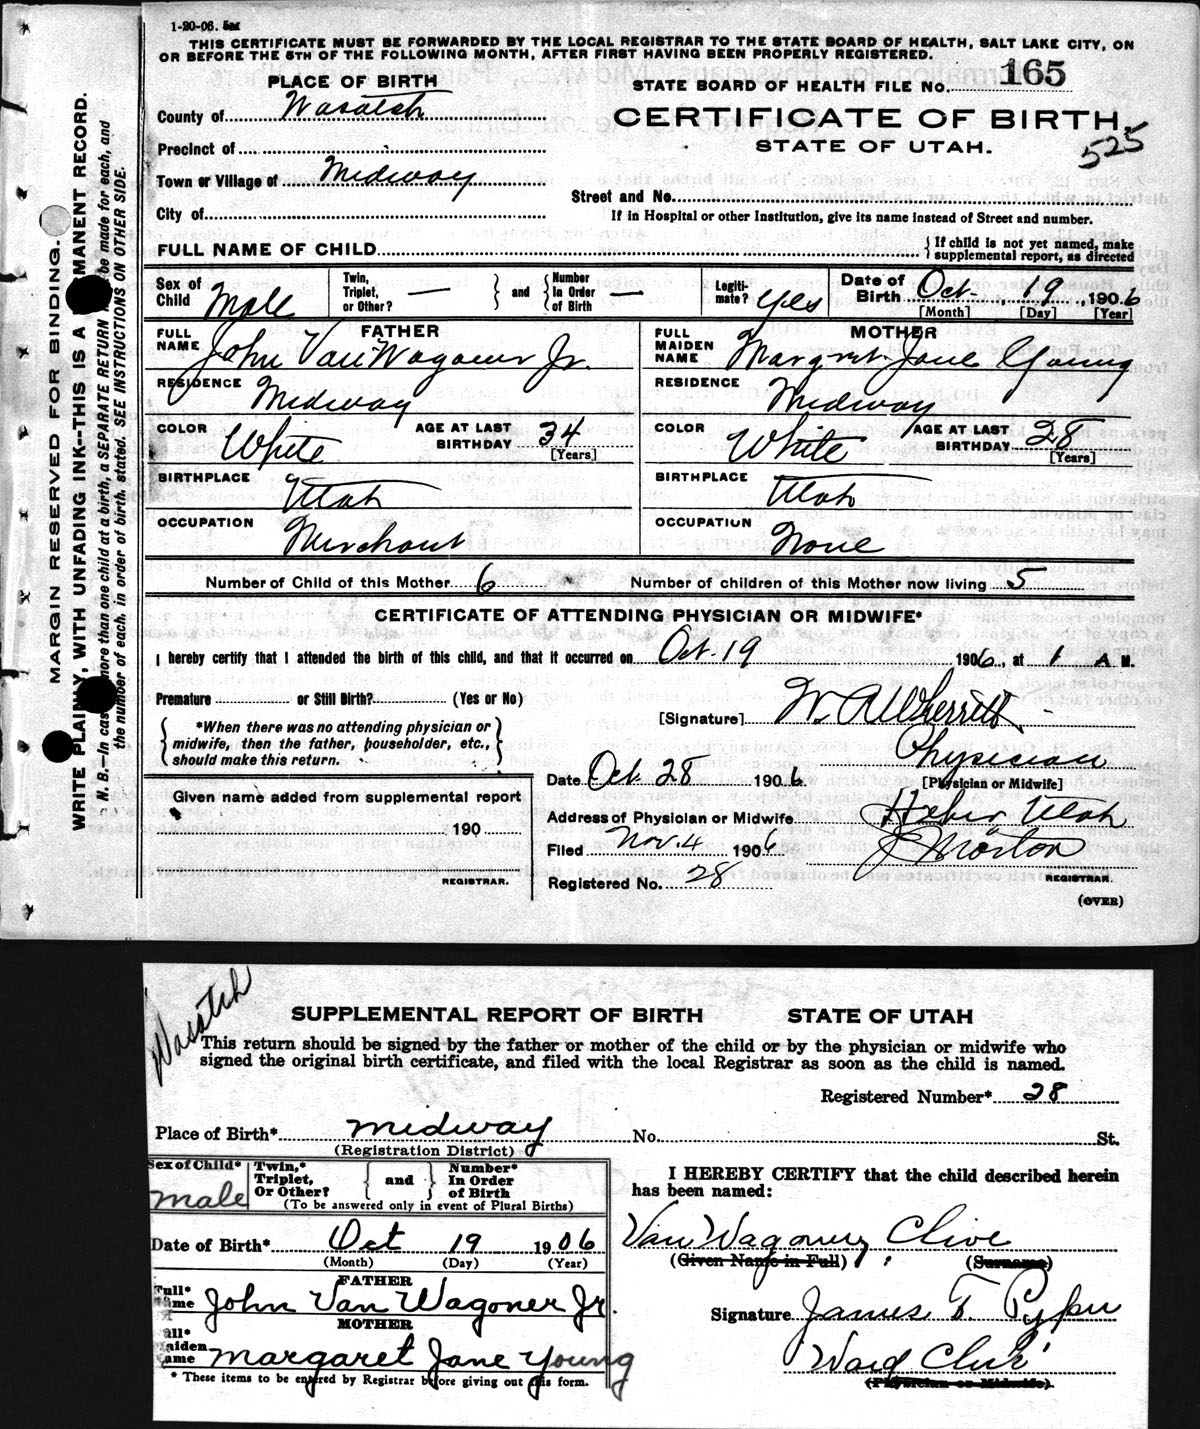 1-20-06.
THIS CERTIFICATE MUST BE FORWARDED BY THE LOCAL REGISTRAR TO THE STATE BOARD OF HEALTH, SALT LAKE CITY, ON
OR BEFORE THE 5TH OF THE FOLLOWING MONTH, AFTER FIRST HAVING BEEN PROPERLY REGISTERED.
MARGIN RESERVED FOR BINDING.
WRITE PLAINLY, WITH UNFADING INK--THIS IS A PERMANENT RECORD.
N. B.--In case more than one child at a birth, a SEPARATE RETURN must be made for each, and
the number of each, in order of birth, stated. SEE INSTRUCTIONS ON OTHER SIDE.
PLACE OF BIRTH
STATE BOARD OF HEALTH FILE No. 165
County of Wasatch
CERTIFICATE OF BIRTH
525
Precinct of
STATE OF UTAH.
Town or Village of Midway
Street and No.
City of
If in Hospital or other Institution, give its name instead of Street and number.
FULL NAME OF CHILD
If child is not yet named, make
supplemental report, as directed
Sex of Child Male
Twin, Triplet, or Other? —
and
Number In Order of Birth —
Legitimate? Yes
Date of Birth Oct. 19 1906
[Month] [Day] [Year]
FATHER
FULL NAME John Van Wagoner Jr.
MOTHER
FULL MAIDEN NAME Margret Jane Young
RESIDENCE Midway
RESIDENCE Midway
COLOR White AGE AT LAST BIRTHDAY 34 [Years]
COLOR White AGE AT LAST BIRTHDAY 28 [Years]
BIRTHPLACE Utah
BIRTHPLACE Utah
OCCUPATION Merchant
OCCUPATION None
Number of Child of this Mother 6 Number of children of this Mother now living 5
CERTIFICATE OF ATTENDING PHYSICIAN OR MIDWIFE*
I hereby certify that I attended the birth of this child, and that it occurred on Oct. 19 1906, at 1 A M.
Premature or Still Birth? (Yes or No)
[Signature] W. R. Wherritt
*When there was no attending physician or
midwife, then the father, householder, etc.,
should make this return.
Physician
[Physician or Midwife]
Date Oct. 28 1906
Given name added from supplemental report
190
REGISTRAR.
Address of Physician or Midwife Heber Utah
Filed Nov. 4 1906 J. Morton
REGISTRAR.
Registered No. 28
(OVER)
Wasatch
SUPPLEMENTAL REPORT OF BIRTH STATE OF UTAH
This return should be signed by the father or mother of the child or by the physician or midwife who
signed the original birth certificate, and filed with the local Registrar as soon as the child is named.
Registered Number* 28
Place of Birth* Midway No. St.
(Registration District)
Sex of Child* male
Twin,* Triplet, Or Other?
and
Number* In Order of Birth
(To be answered only in event of Plural Births)
I HEREBY CERTIFY that the child described herein
has been named:
Date of Birth* Oct 19 1906
(Month) (Day) (Year)
Van Wagoner, Clive
(Given Name in Full) (Surname)
FATHER
Full* Name John Van Wagoner Jr.
MOTHER
Full* Maiden Name Margaret Jane Young
Signature James T. Pyper
Ward Clerk
(Physician or Midwife)
* These items to be entered by Registrar before giving out this form.